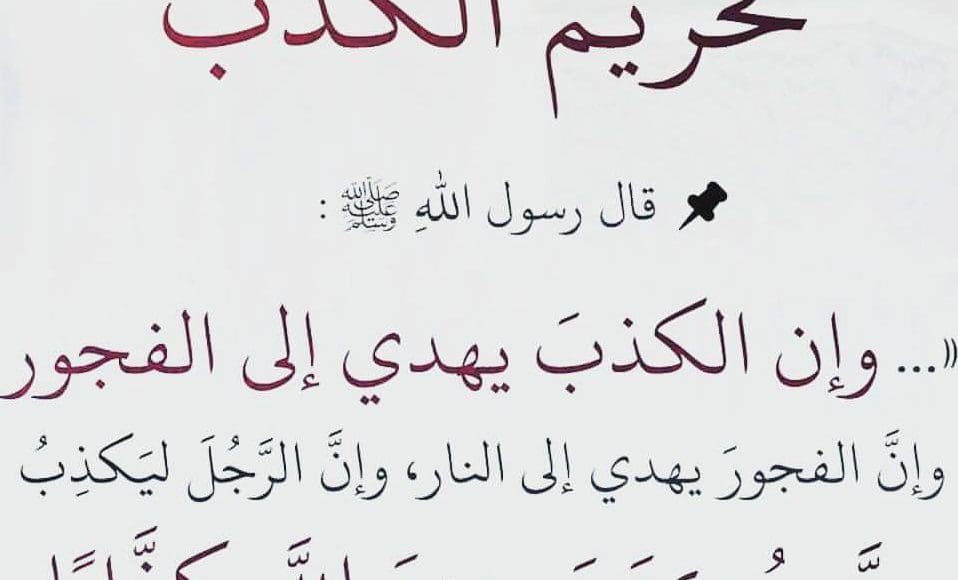 تحريم الكذب
قال رسول اللهِ ﷺ :
«... وإن الكذبَ يهدي إلى الفجور
وإنَّ الفجورَ يهدي إلى النار، وإنَّ الرَّجُلَ ليَكذِبُ